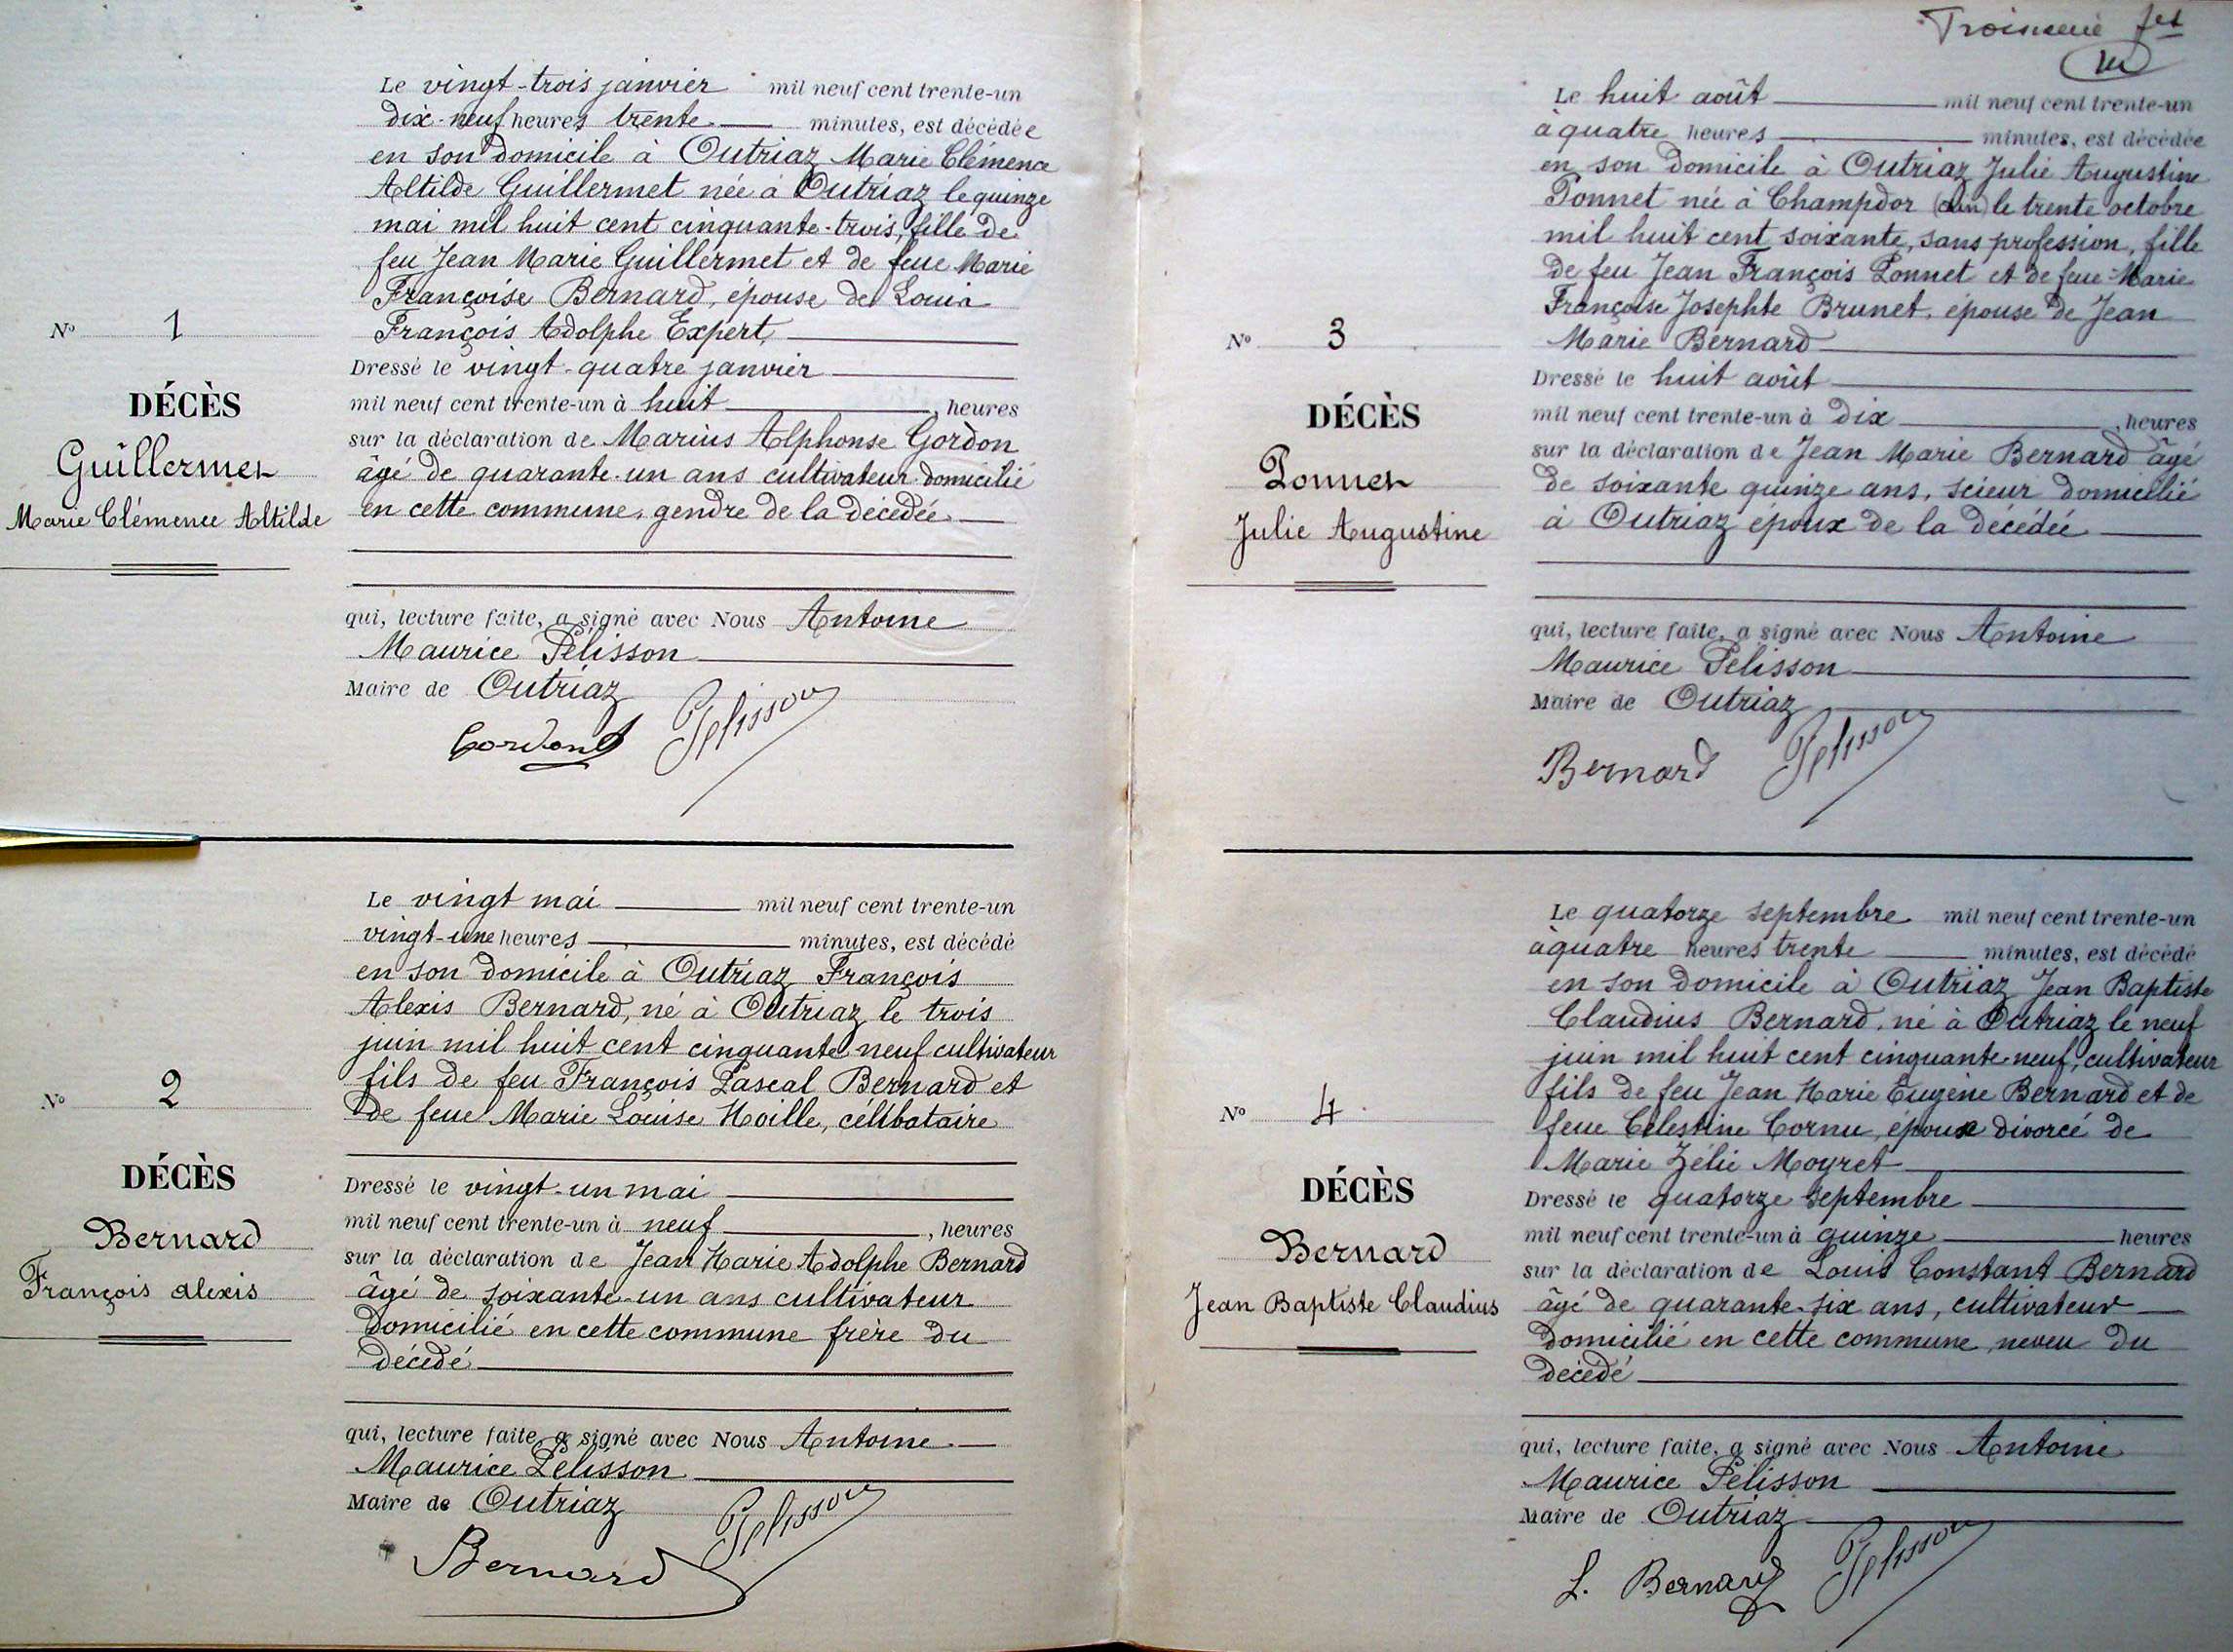 Le vingt-trois janvier mil neuf cent trente-un
dix-neuf heures trente minutes, est décédée
en son domicile à Outriaz Marie Clémence
Altilde Guillermet née à Outriaz le quinze
mai mil huit cent cinquante-trois, fille de
feu Jean Marie Guillermet et de feue Marie
Françoise Bernard, épouse de Louis
François Adolphe Expert,
N° 1
DÉCÈS
Guillermet
Marie Clémence Altilde
Dressé le vingt-quatre janvier
mil neuf cent trente-un à huit, heures
sur la déclaration de Marius Alphonse Gordon
âgé de quarante-un ans cultivateur domicilié
en cette commune, gendre de la décédée.
qui, lecture faite, a signé avec Nous Antoine
Maurice Pélisson
Maire de Outriaz
Gordon Pelisson
Le vingt mai mil neuf cent trente-un
vingt-une heures minutes, est décédé
en son domicile à Outriaz François
Alexis Bernard, né à Outriaz le trois
juin mil huit cent cinquante neuf cultivateur
fils de feu François Pascal Bernard et
de feue Marie Louise Hoille, célibataire
N° 2
DÉCÈS
Bernard
François Alexis
Dressé le vingt-un mai
mil neuf cent trente-un à neuf, heures
sur la déclaration de Jean Marie Adolphe Bernard
âgé de soixante-un ans cultivateur
domicilié en cette commune frère du
décédé
qui, lecture faite, a signé avec Nous Antoine
Maurice Pélisson
Maire de Outriaz
Bernard Pelisson
Troisième fet
Le huit août mil neuf cent trente-un
à quatre heures minutes, est décédée
en son domicile à Outriaz Julie Augustine
Ponnet née à Champdor (Ain) le trente octobre
mil huit cent soixante, sans profession, fille
de feu Jean François Ponnet et de feue Marie
Françoise Josephte Brunet, épouse de Jean
Marie Bernard
N° 3
DÉCÈS
Ponnet
Julie Augustine
Dressé le huit août
mil neuf cent trente-un à dix, heures
sur la déclaration de Jean Marie Bernard âgé
de soixante quinze ans, scieur domicilié
à Outriaz époux de la décédée
qui, lecture faite, a signé avec Nous Antoine
Maurice Pélisson
Maire de Outriaz
Bernard Pelisson
Le quatorze septembre mil neuf cent trente-un
à quatre heures trente minutes, est décédé
en son domicile à Outriaz Jean Baptiste
Claudius Bernard, né à Outriaz le neuf
juin mil huit cent cinquante-neuf, cultivateur
fils de feu Jean Marie Eugène Bernard et de
feue Célestine Cornu, époux divorcé de
Marie Zélie Moyret
N° 4
DÉCÈS
Bernard
Jean Baptiste Claudius
Dressé le quatorze septembre
mil neuf cent trente-un à quinze heures
sur la déclaration de Louis Constant Bernard
âgé de quarante-six ans, cultivateur
domicilié en cette commune, neveu du
décédé
qui, lecture faite, a signé avec Nous Antoine
Maurice Pélisson
Maire de Outriaz
L. Bernard Pelisson